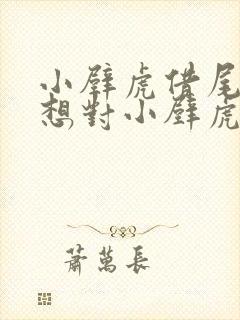 小壁虎借尾
想對小壁虎
蕭萬長